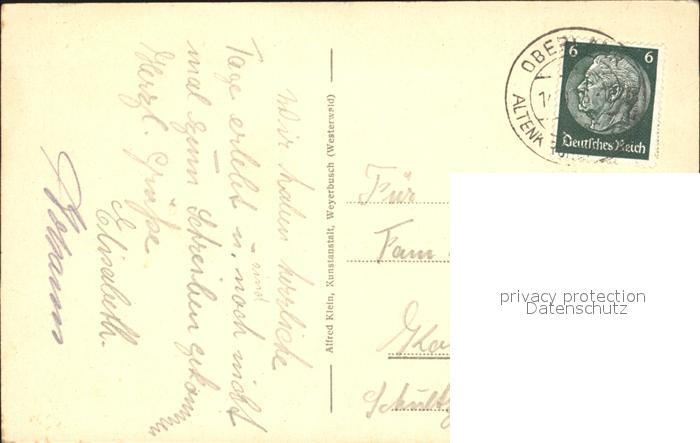 Wir haben herrliche
Tage erlebt u. noch nicht
sind
mal zum Schreiben gekommen
Herzl. Grüße
Elisabeth.
Johann
Alfred Klein, Kunstanstalt, Weyerbusch (Westerwald)
OBER
ALTENK
6 6
Deutsches Reich
Für
Fam
privacy protection
Datenschutz